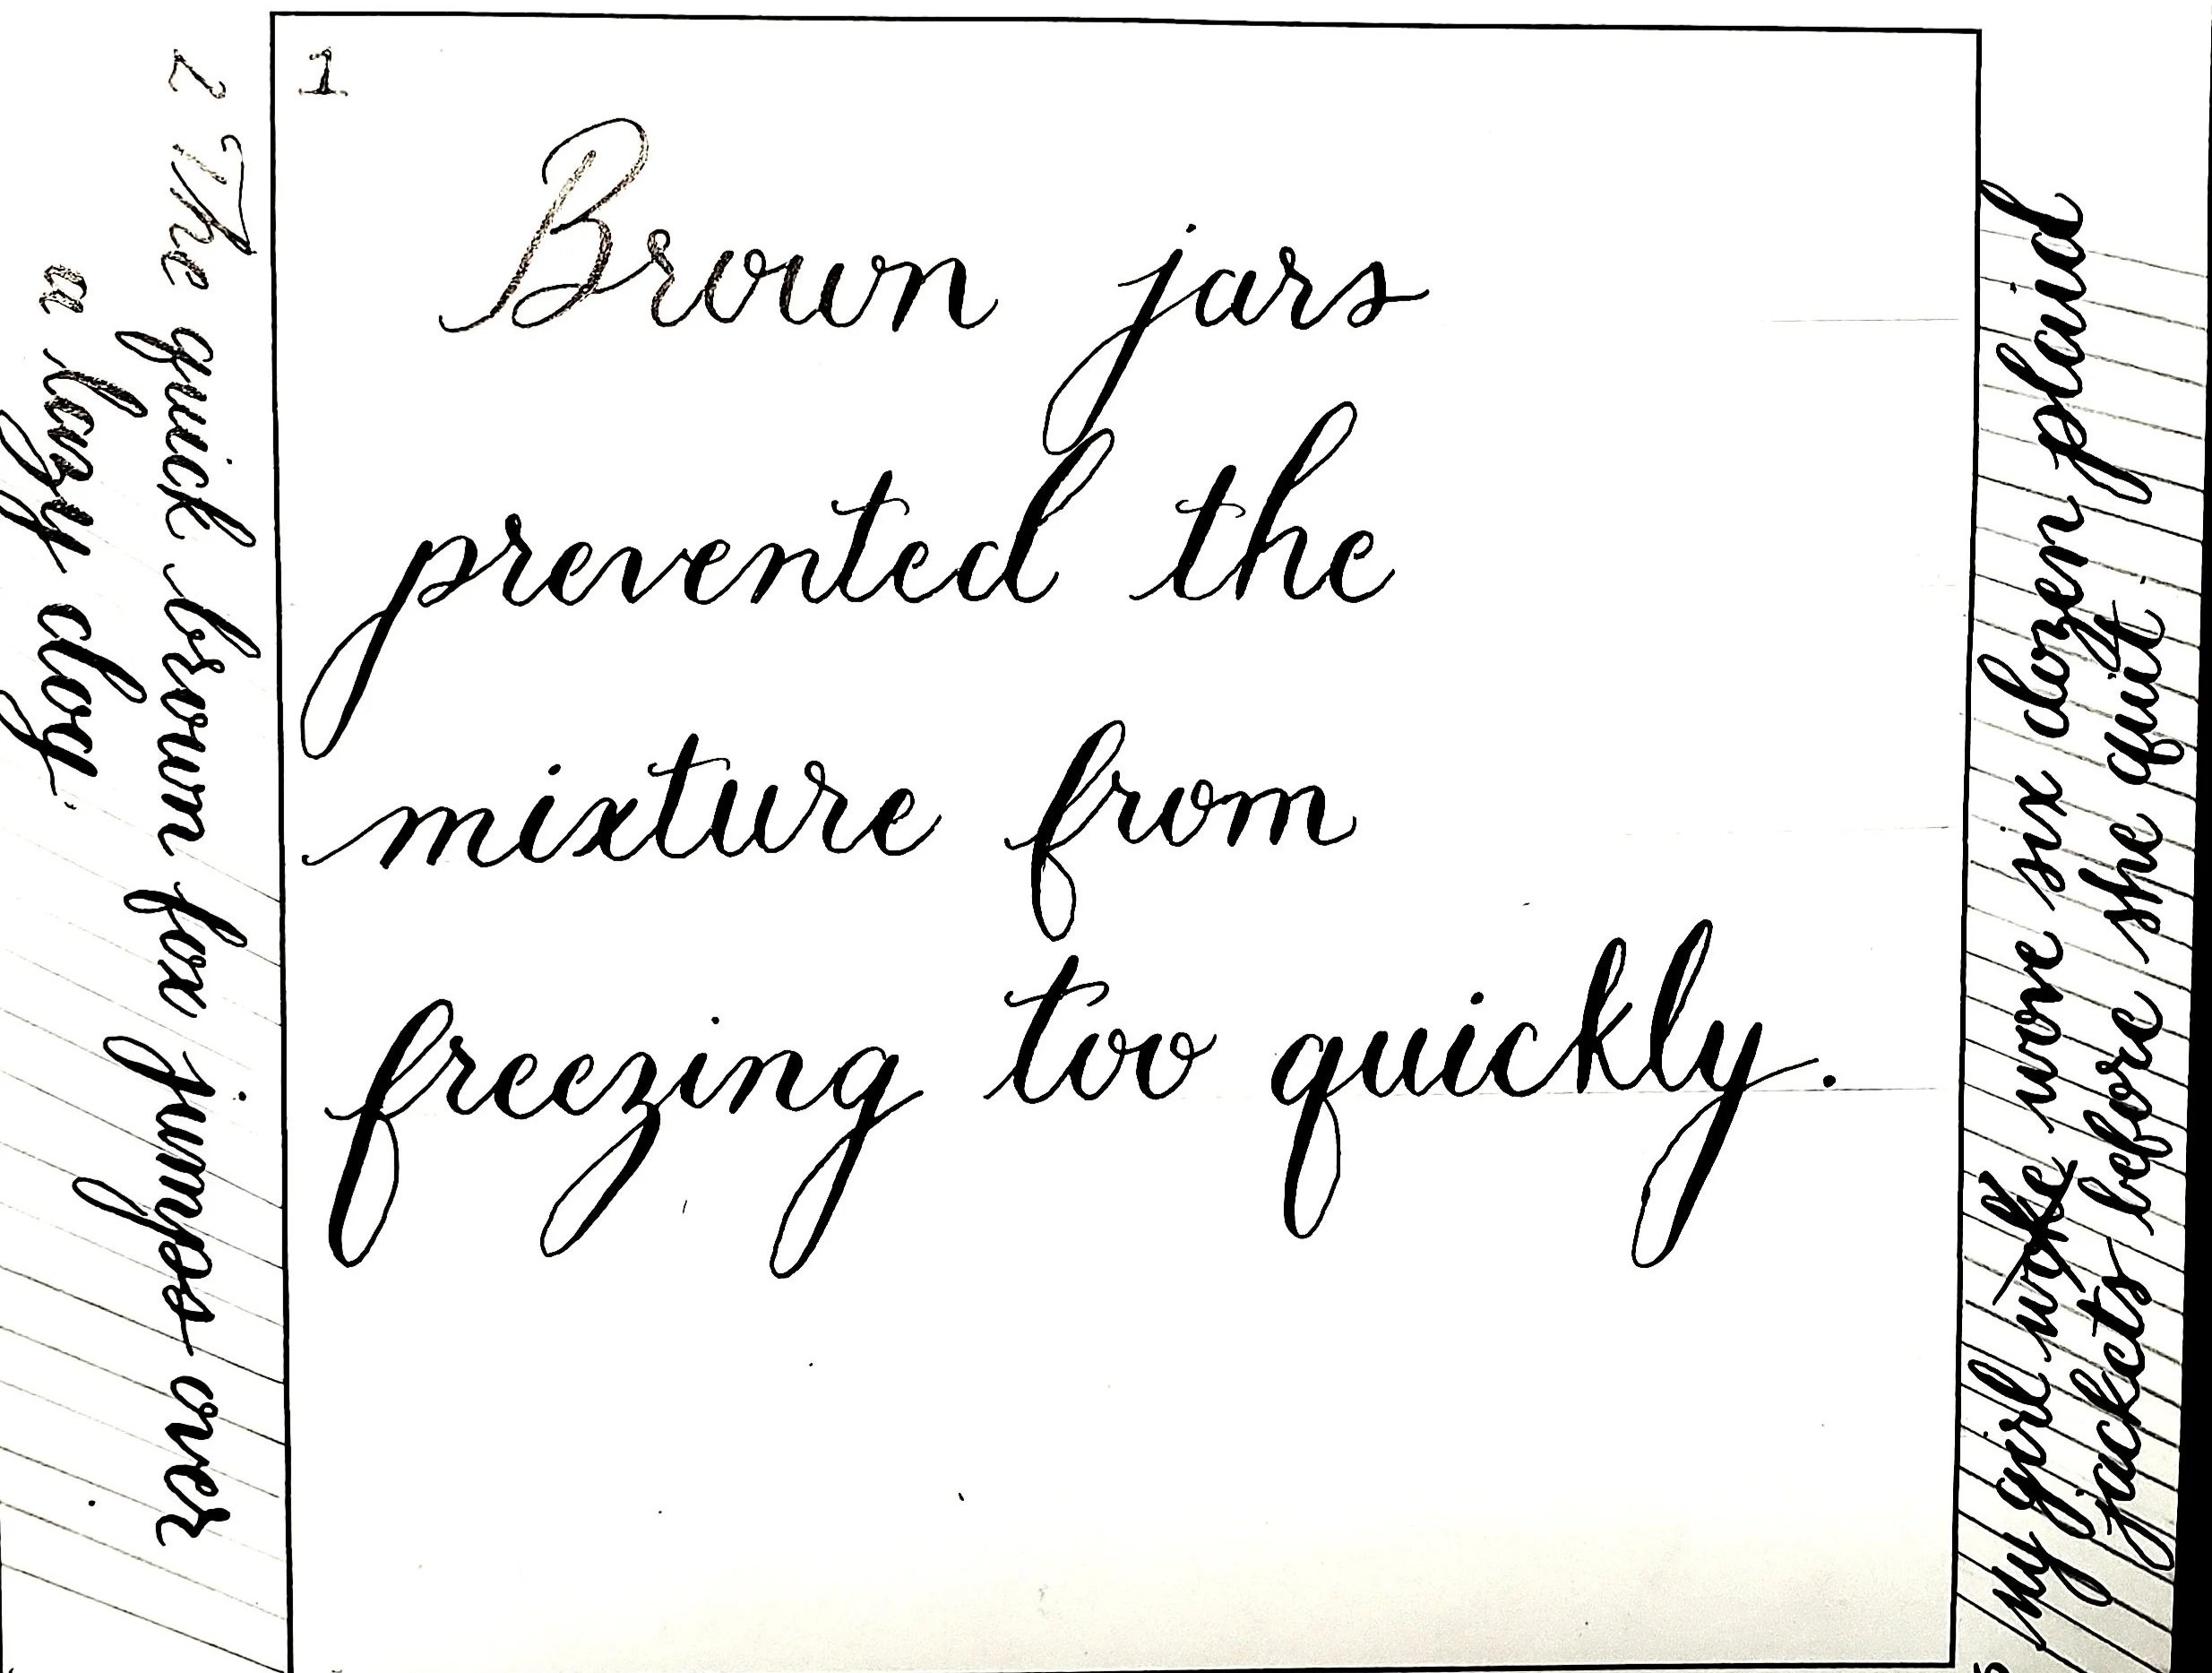 1
Brown jars
prevented the
mixture from
freezing too quickly.
2 The quick brown fox jumps over
a lazy dog.
My girl woke wore six dozen plaid
jackets before she quit.